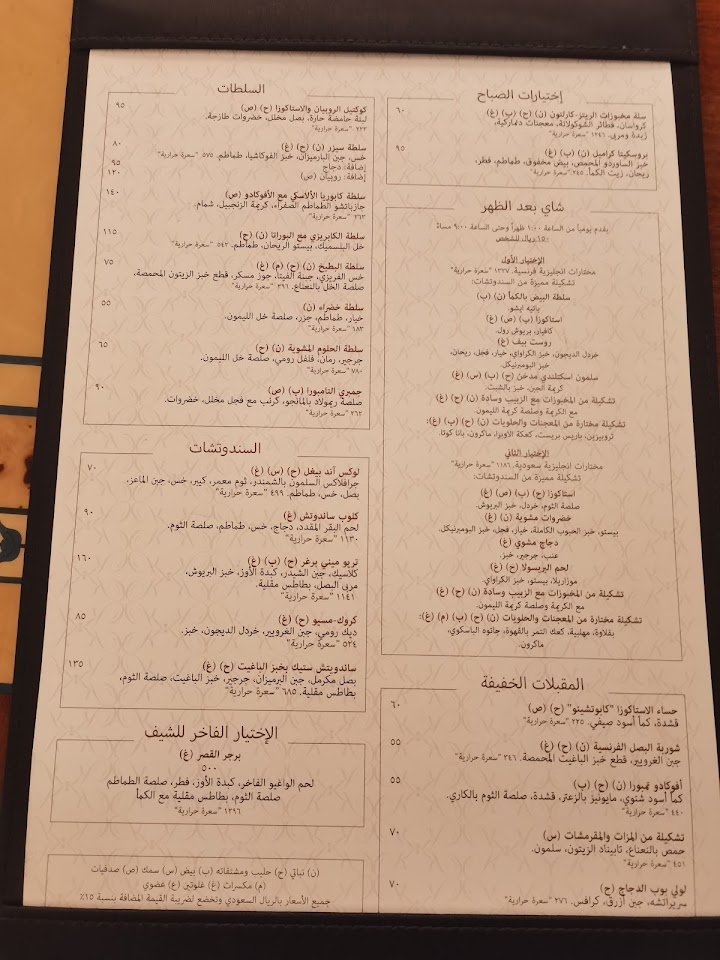 إختيارات الصباح
سلة مخبوزات الريتز-كارلتون (ن) (ح) (ب) (غ)
٦٠
كرواسان، فطائر الشوكولاتة، معجنات دنماركية،
زبدة ومربى. ١٢٤٦ "سعرة حرارية"
بروسكيتا كراميل (ن) (ب) (غ)
٩٥
خبز الساوردو المحمص، بيض مخفوق، طماطم، فطر،
ريحان، زيت الكمأ. ٢٤٥ "سعرة حرارية"
شاي بعد الظهر
يقدم يومياً من الساعة ١:٠٠ ظهراً وحتى الساعة ٩:٠٠ مساءً
٦٥٠ ريال للشخص
الإختيار الأول
مختارات انجليزية فرنسية. ١٣٣٧ "سعرة حرارية"
تشكيلة مميزة من السندوتشات:
سلطة البيض بالكمأ (ن) (ب)
باتيه ايشو.
استاكوزا (ب) (ص) (غ)
كافيار، بريوش رول.
روست بيف (غ)
خردل الديجون، خبز الكراواي، خيار، فجل، ريحان،
خبز البومبرنيكل.
سلمون اسكتلندي مدخن (ح) (ب) (س) (غ)
كريمة الجبن، خبز بالشبت.
تشكيلة من المخبوزات مع الزبيب وسادة (ن) (ح) (غ)
مع الكريمة وصلصة كريمة الليمون.
تشكيلة مختارة من المعجنات والحلويات (ن) (ح) (ب) (غ):
تروبيزين، باريس بريست، كعكة الاوبرا، ماكرون، بانا كوتا.
الإختيار الثاني
مختارات انجليزية سعودية. ١١٨٦ "سعرة حرارية"
تشكيلة مميزة من السندوتشات:
استاكوزا (ح) (ب) (ص) (غ)
صلصة الثوم، خردل، خبز البريوش.
خضروات مشوية (ن) (غ)
بيستو، خبز الحبوب الكاملة، خيار، فجل، خبز البومبرنيكل.
دجاج مشوي (غ)
عنب، جرجير، خبز.
لحم البريسولا (ح) (غ)
موزاريلا، بيستو، خبز الكراواي.
تشكيلة من المخبوزات مع الزبيب وسادة (ن) (ح) (غ)
مع الكريمة وصلصة كريمة الليمون.
تشكيلة مختارة من المعجنات والحلويات (ن) (ح) (ب) (م) (غ):
بقلاوة، مهلبية، كعك التمر بالقهوة، جاتوه الباسكوي،
ماكرون.
المقبلات الخفيفة
حساء الاستاكوزا "كابوتشينو" (ح) (ص)
٦٠
قشدة، كمأ أسود صيفي. ٢٢٥ "سعرة حرارية"
شوربة البصل الفرنسية (ن) (ح) (غ)
٥٥
جبن الغرويير، قطع خبز الباغيت المحمصة. ٢٤٦ "سعرة حرارية"
أفوكادو تمبورا (ن) (ح) (ب)
٥٥
كمأ أسود شتوي، مايونيز بالزعتر، قشدة، صلصة الثوم بالكاري.
٤٤٠ "سعرة حرارية"
تشكيلة من المزات والمقرمشات (س)
٧٠
حمص بالنعناع، تابيناد الزيتون، سلمون.
٤٥١ "سعرة حرارية"
لولي بوب الدجاج (ح)
٧٠
سريراتشه، جبن أزرق، كرافس. ٢٧٦ "سعرة حرارية"
السلطات
كوكتيل الروبيان والاستاكوزا (ح) (ص)
٩٥
لبنة حامضة حارة، بصل مخلل، خضروات طازجة.
٢٢٣ "سعرة حرارية"
سلطة سيزر (ن) (ح) (غ)
٨٠
خس، جبن البارميزان، خبز الفوكاشيا، طماطم. ٥٧٥ "سعرة حرارية"
إضافة: دجاج
٩٥
إضافة: روبيان (ص)
١٢٠
سلطة كابوريا الألاسكي مع الأفوكادو (ص)
١٤٠
جازباتشو الطماطم الصفراء، كريمة الزنجبيل، شمام.
٢٦٢ "سعرة حرارية"
سلطة الكابريزي مع البوراتا (ن) (ح)
١١٥
خل البلسميك، بيستو الريحان، طماطم. ٥٤٢ "سعرة حرارية"
سلطة البطيخ (ن) (ح) (م) (غ)
٧٥
خس الفريزي، جبنة الفيتا، جوز مسكر، قطع خبز الزيتون المحمصة،
صلصة الخل بالنعناع. ٣٩٦ "سعرة حرارية"
سلطة خضراء (ن)
٥٥
خيار، طماطم، جزر، صلصة خل الليمون.
١٨٣ "سعرة حرارية"
سلطة الحلوم المشوية (ن) (ح)
٦٥
جرجير، رمان، فلفل رومي، صلصة خل الليمون.
٧٨٠ "سعرة حرارية"
جمبري التامبورا (ب) (ص)
٩٠
صلصة ريمولاد بالمانجو، كرنب مع فجل مخلل، خضروات.
٢٦٢ "سعرة حرارية"
السندوتشات
لوكس آند بيغل (ح) (س) (غ)
٧٠
جرافلاكس السلمون بالشمندر، ثوم معمر، كيبر، خس، جبن الماعز،
بصل، خس، طماطم. ٤٩٩ "سعرة حرارية"
كلوب ساندوتش (غ)
٩٠
لحم البقر المقدد، دجاج، خس، طماطم، صلصة الثوم.
١١٣٠ "سعرة حرارية"
تريو ميني برغر (ح) (ب) (غ)
١٦٠
كلاسيك، جبن الشيدر، كبدة الأوز، خبز البريوش،
مربى البصل، بطاطس مقلية.
١١٤١ "سعرة حرارية"
كروك-مسيو (ح) (غ)
٨٥
ديك رومي، جبن الغرويير، خردل الديجون، خبز.
٥٢٤ "سعرة حرارية"
ساندويتش ستيك بخبز الباغيت (ح) (غ)
١٣٥
بصل مكرمل، جبن البرميزان، جرجير، خبز الباغيت، صلصة الثوم،
بطاطس مقلية. ٦٨٥ "سعرة حرارية"
الإختيار الفاخر للشيف
برجر القصر (غ)
٥٠٠
لحم الواغيو الفاخر، كبدة الأوز، فطر، صلصة الطماطم
صلصة الثوم، بطاطس مقلية مع الكمأ
١٣٩٦ "سعرة حرارية"
(ن) نباتي (ح) حليب ومشتقاته (ب) بيض (س) سمك (ص) صدفيات
(م) مكسرات (غ) غلوتين (ع) عضوي
جميع الأسعار بالريال السعودي وتخضع لضريبة القيمة المضافة بنسبة ١٥٪